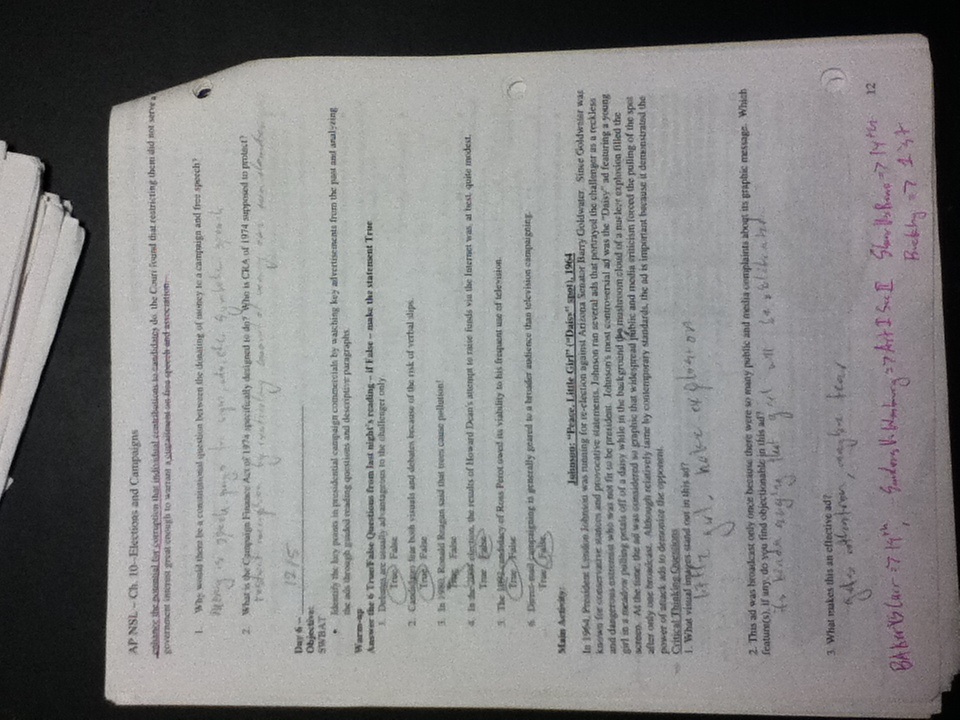 AP NSL – Ch. 10--Elections and Campaigns
enhance the potential for corruption that individual contributions to candidates do, the Court found that restricting them did not serve a
government interest great enough to warrant a curtailment on free speech and association.
1. Why would there be a constitutional question between the donating of money to a campaign and free speech?
Money is speech, pays for signs, ads, etc. symbolic speech
2. What is the Campaign Finance Act of 1974 specifically designed to do? Who is CRA of 1974 supposed to protect?
corruption by controlling amount of money
Day 6 – 12/5
Objective:
SWBAT
• Identify the key points in presidential campaign commercials by watching key advertisements from the past and analyzing
the ads through guided reading questions and descriptive paragraphs.
Warm-up
Answer the 6 True/False Questions from last night's reading – if False – make the statement True
1. Debates are usually advantageous to the challenger only.
True False
2. Candidates fear both visuals and debates because of the risk of verbal slips.
True False
3. In 1980, Ronald Reagan said that trees cause pollution!
True False
4. In the 2004 election, the results of Howard Dean's attempt to raise funds via the Internet was, at best, quite modest.
True False
5. The 1992 candidacy of Ross Perot owed its viability to his frequent use of television.
True False
6. Direct-mail campaigning is generally geared to a broader audience than television campaigning.
True False
Main Activity:
Johnson: "Peace, Little Girl" ("Daisy" spot), 1964
In 1964, President Lyndon Johnson was running for re-election against Arizona Senator Barry Goldwater. Since Goldwater was
known for conservative stances and provocative statements, Johnson ran several ads that portrayed the challenger as a reckless
and dangerous extremist who was not fit to be president. Johnson's most controversial ad was the "Daisy" ad featuring a young
girl in a meadow pulling petals off of a daisy while in the background the mushroom cloud of a nuclear explosion filled the
screen. At the time, the ad was considered so graphic that widespread public and media criticism forced the pulling of the spot
after only one broadcast. Although relatively tame by contemporary standards, the ad is important because it demonstrated the
power of attack ads to demonize the opponent.
Critical Thinking Questions
1. What visual images stand out in this ad?
little girl, nuke explosion
2. This ad was broadcast only once because there were so many public and media complaints about its graphic message. Which
feature(s), if any, do you find objectionable in this ad?
its kinda saying that girl will be obliterated
3. What makes this an effective ad?
gets attention, maybe fear
12
BAker VS Carr => 14th, Vs => Art I Sec II Shaw Vs Reno => 14th
Buckley => 1st